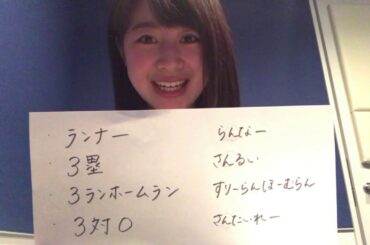 ・ランナー らんなー
・3塁 さんるい
・3ランホームラン すりーらんほーむらん
・3対0 さんたいれー